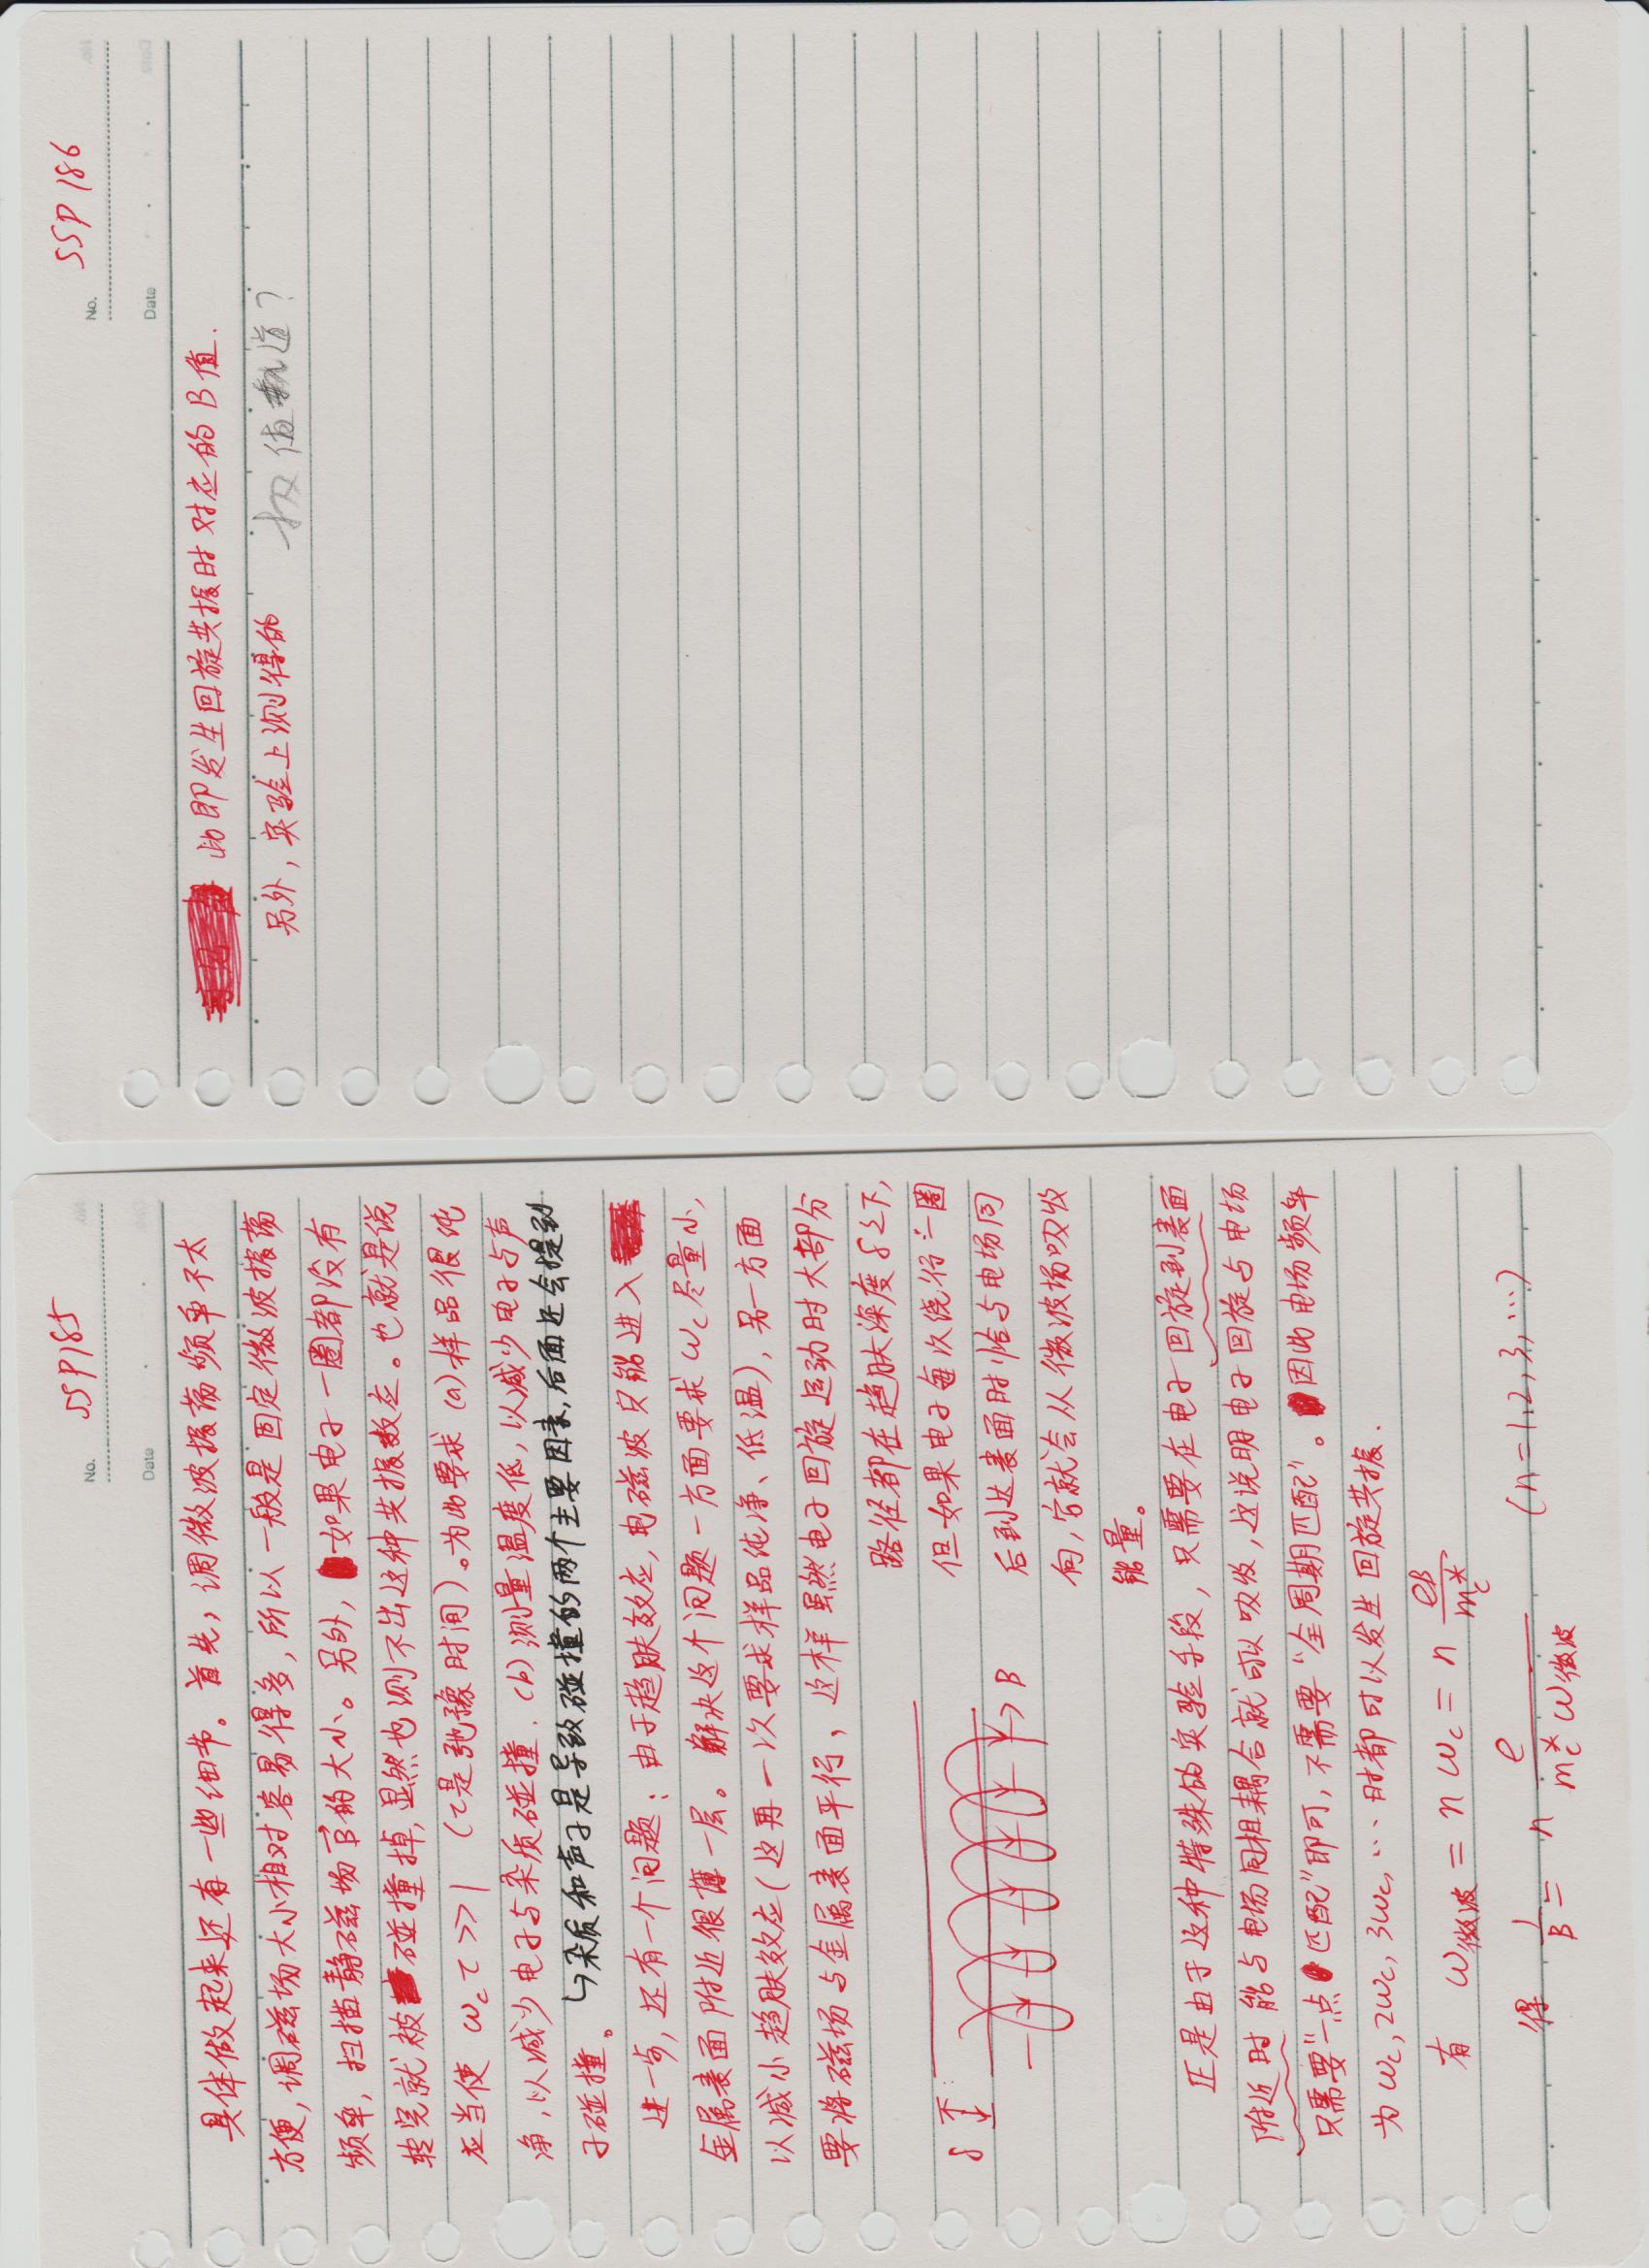 No. SSP185
Date
具体做起来还有一些细节。首先，调微波振荡频率不太
方便，调磁场大小相对容易得多，所以一般是固定微波振荡
频率，扫描静磁场B⃗的大小。另外，如果电子一圈都没有
转完就被碰撞掉，显然也测不出这种共振效应。也就是说
应当使 ω_c τ >> 1 （τ是弛豫时间）。为此要求 (a) 样品很纯
净，以减少电子与杂质碰撞. (b) 测量温度低，以减少电子与声
子碰撞。 ↳杂质和声子是导致碰撞的两个主要因素，后面还会提到.
进一步，还有一个问题：由于趋肤效应，电磁波只能进入
金属表面附近很薄一层。解决这个问题一方面要求 ω_c 尽量小，
以减小趋肤效应（这再一次要求样品纯净、低温），另一方面
要将磁场与金属表面平行，这样虽然电子回旋运动时大部分
路径都在趋肤深度 δ 之下，
但如果电子每次绕行一圈
后到达表面时恰与电场同
向，它就会从微波场吸收
能量。
δ
B
正是由于这种特殊的实验手段，只需要在电子回旋到表面
附近时能与电场同相耦合就可以吸收，这说明电子回旋与电场
只需要“一点匹配”即可，不需要“全周期匹配”。因此电场频率
为 ω_c, 2ω_c, 3ω_c, … 时都可以发生回旋共振.
有 ω_微波 = n ω_c = n eB/m_c^*
得 1/B = n e/(m_c^* ω_微波) (n=1,2,3,…)
No. SSP 186
Date
此即发生回旋共振时对应的 B 值.
另外，实验上测得的 极值轨道？